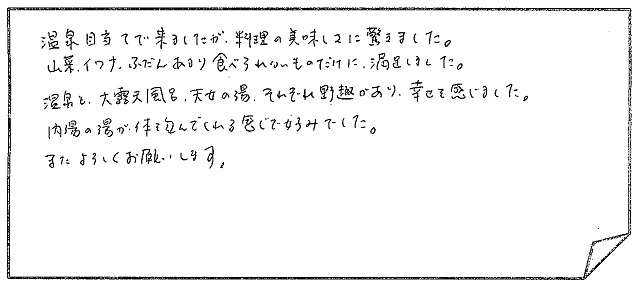 温泉目当てで来ましたが、料理の美味しさに驚きました。
山菜、イワナ、ふだんあまり食べられないものだけに、満足しました。
温泉も、大露天風呂、天女の湯、それぞれ野趣があり、幸せを感じました。
内湯の湯が、体を包んでくれる感じで好みでした。
またよろしくお願いします。